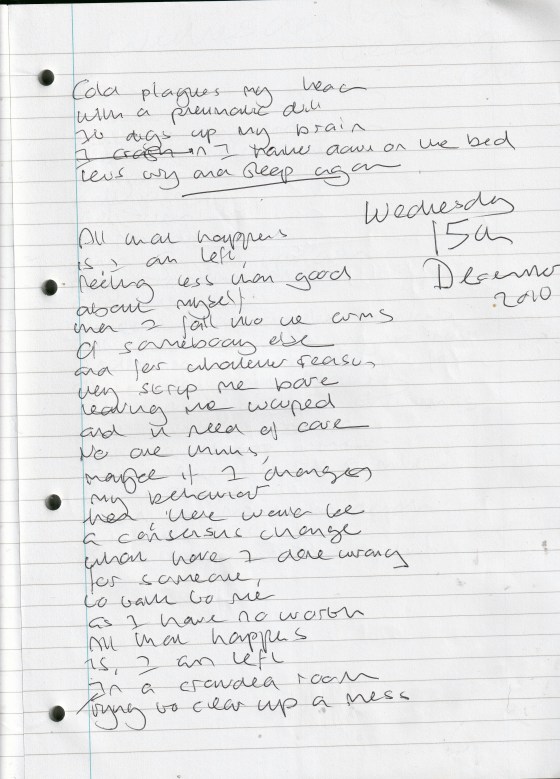 Cold plagues my head
with a pneumatic drill
It digs up my brain
I crash in I rather down on the bed
lets cry and sleep again
Wednesday
15th
December
2010
All that happens
is, I am left,
feeling less than good
about myself
then I fall into the arms
of somebody else
and for whatever reason,
they strip me bare
leaving me warped
and in need of care
No one thinks,
maybe if I changes
my behavior
then there would be
a consensus change
what have I done wrong
for someone,
to talk to me
as I have no worth
All that happens
is, I am left
In a crowded room
trying to clear up a mess